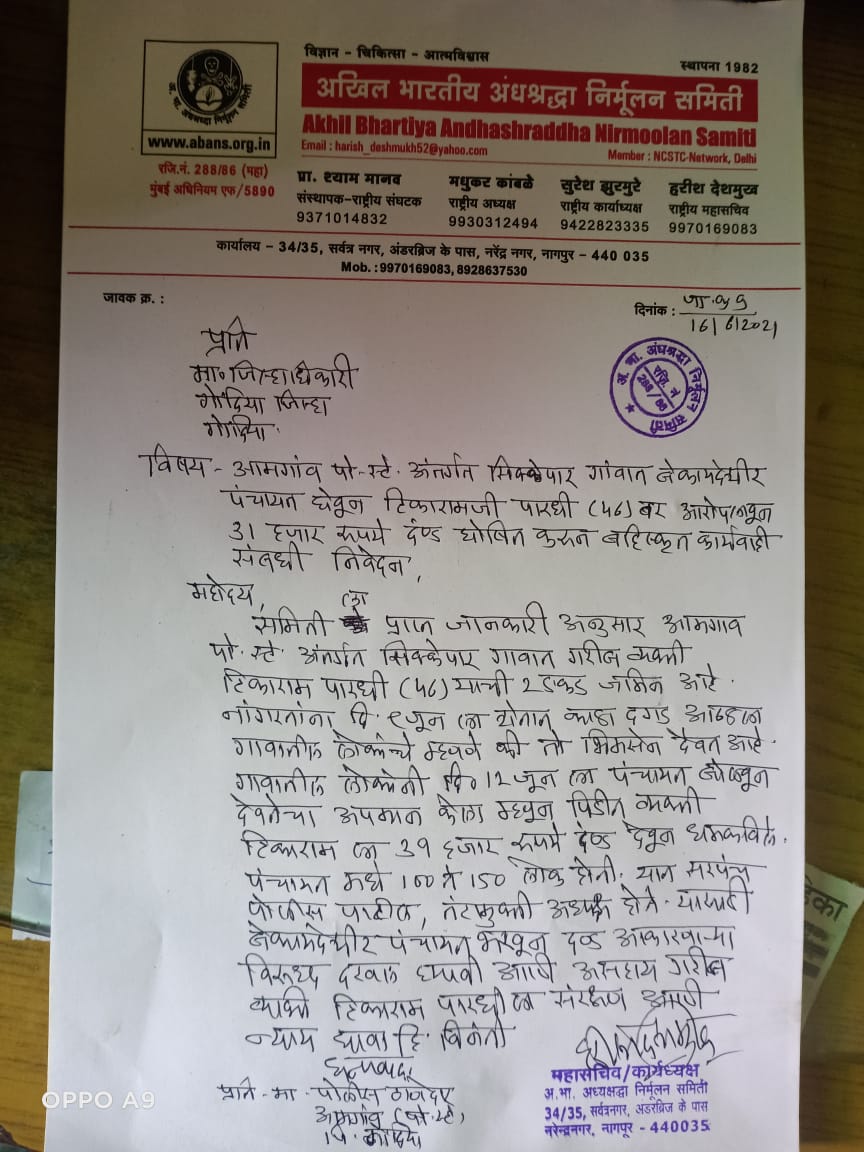 विज्ञान - चिकित्सा - आत्मविश्वास
स्थापना 1982
अखिल भारतीय अंधश्रद्धा निर्मूलन समिती
Akhil Bhartiya Andhashraddha Nirmoolan Samiti
Email : harish_deshmukh52@yahoo.com
Member : NCSTC-Network, Delhi
www.abans.org.in
रजि.नं. 288/86 (महा)
मुंबई अधिनियम एफ/5890
प्रा. श्याम मानव
संस्थापक-राष्ट्रीय संघटक
9371014832
मधुकर कांबळे
राष्ट्रीय अध्यक्ष
9930312494
सुरेश झुरमुरे
राष्ट्रीय कार्याध्यक्ष
9422823335
हरीश देशमुख
राष्ट्रीय महासचिव
9970169083
कार्यालय - 34/35, सर्वत्र नगर, अंडरब्रिज के पास, नरेंद्र नगर, नागपुर - 440 035
Mob. : 9970169083, 8928637530
जावक क्र. :
दिनांक :
16/6/2021
अ. भा. अंधश्रद्धा निर्मूलन समिती
रजि. नं
288/86
प्रति
मा. जिल्हाधिकारी
गोंदिया जिल्हा
गोंदिया.
विषय - आमगांव पो. स्टे. अंतर्गत सिक्केपार गांवात बेकायदेशीर
पंचायत घेवून टिकारामजी पारधी (46) वर आरोप लावून
31 हजार रुपये दंड घोषित करून बहिष्कृत कार्यवाही
संबधी निवेदन,
महोदय,
समिती ला प्राप्त जानकारी अनुसार आमगाव
पो. स्टे. अंतर्गत सिक्केपार गावात गरीब व्यक्ती
टिकाराम पारधी (46) याची 2 एकड जमिन आहे.
नांगरतांना दि. ९ जून ला शेतात काळा दगड आढळला
गावातील लोकांचे म्हणणे की तो भिमसेन देवत आहे.
गावातील लोकांनी दि. 12 जून ला पंचायत बोलवून
देवतेचा अपमान केला म्हणून पिडीत व्यक्ती
टिकाराम ला 31 हजार रुपये दंड देवून धमकविले.
पंचायत मधे 100 ते 150 लोक होती. यात सरपंच
पोलीस पाटील, तंटामुक्ती अध्यक्ष होते. यासाठी
बेकायदेशीर पंचायत भरवून दंड आकारणाऱ्या
विरुध्द दखल घ्यावी आणी असहाय गरीब
व्यक्ती टिकाराम पारधी ला संरक्षण आणी
न्याय द्यावा हि विनंती
धन्यवाद
प्रति - मा. पोलीस ठाणेदार
आमगांव (पो. स्टे)
जि. गोंदिया
महासचिव/कार्यध्यक्ष
अ.भा. अध्यक्षद्धा निर्मूलन समिती
34/35, सर्वत्रनगर, अंडरब्रिज के पास
नरेन्द्रनगर, नागपुर - 440035
OPPO A9